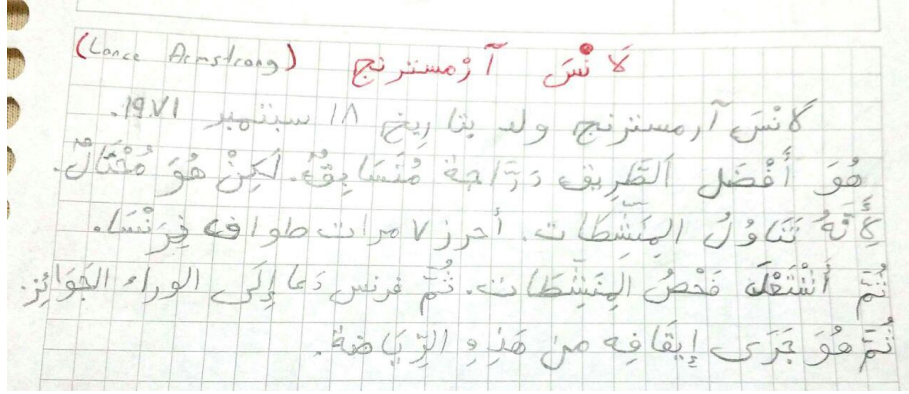 لَانْسَ آرْمسترنج (Lance Armstrong)
لَانْسَ آرمسترنج ولد بتاريخ ١٨ سبتمبر ١٩٧١.
هُوَ أَفْضَل اَلطَّرِيق دَرَّاجة مُتَسَابِقٌ. لَكِنْ هُوَ مُحْتَالٌ.
لِأَنَّهُ تَنَاوُلُ المِنَشِّطَات. أحرز ٧ مرات طواف فِرَنْسَا.
ثُمَّ أَشْتَغَلَ فَحْصُ المِنَشِّطَات. ثُمَّ فرنس دَعا إِلَى الوراء الجَوَائِز.
ثُمَّ هُوَ جَرَى إِيقَافِه من هَذِهِ الرِّيَاضة.